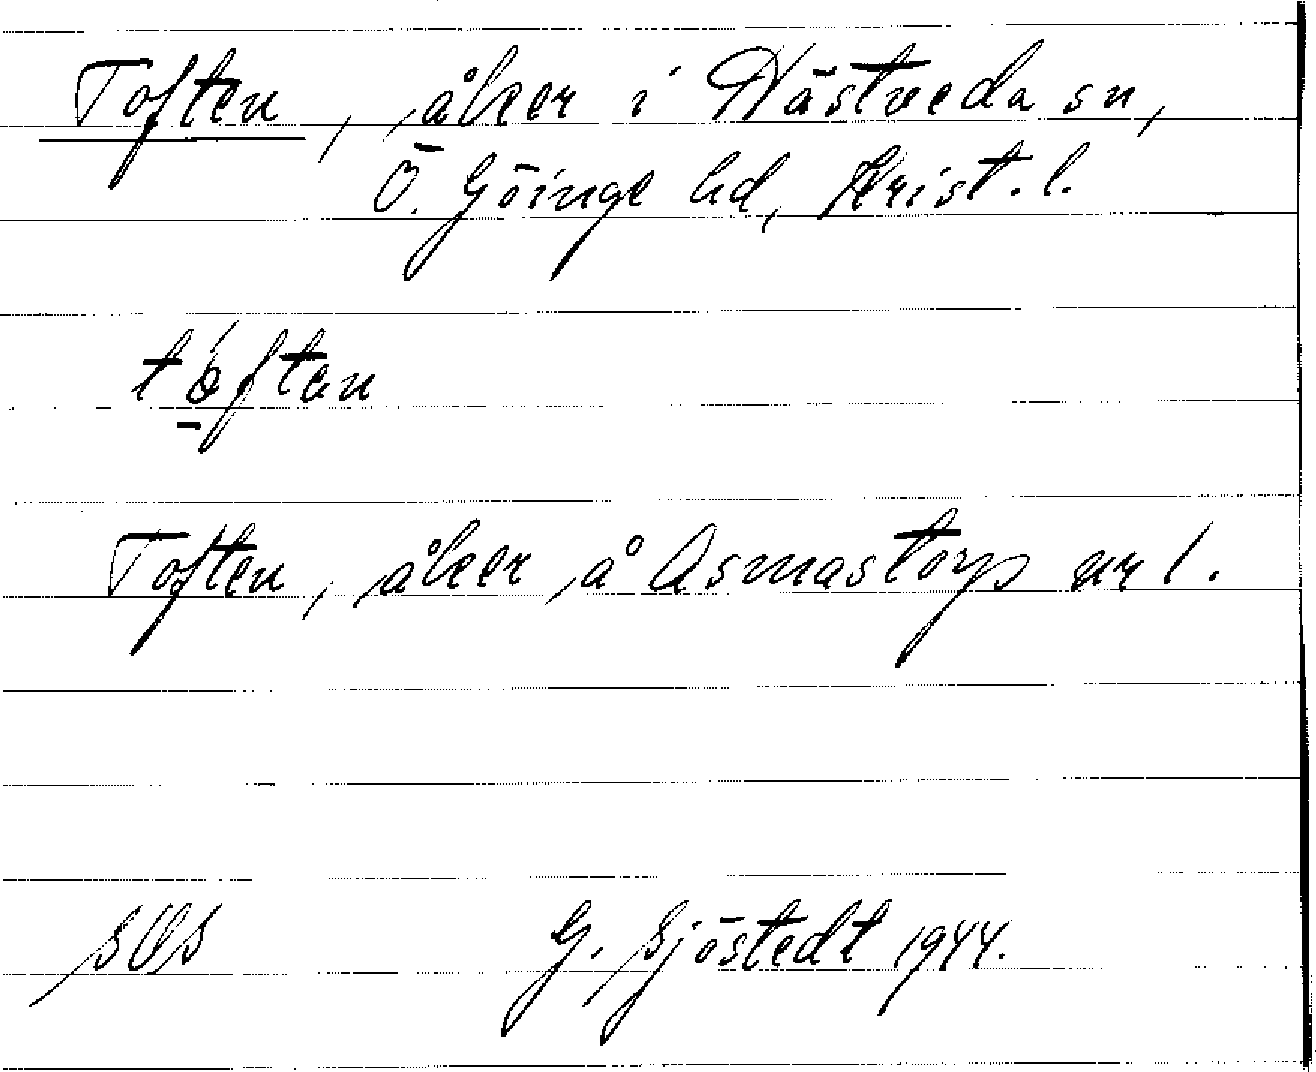 Toften, åker i Hästveda sn,
Ö. Göinge hd, Krist. l.
tóftan
Toften, åker å Asmastorp nr 1.
G. Sjöstedt 1944.